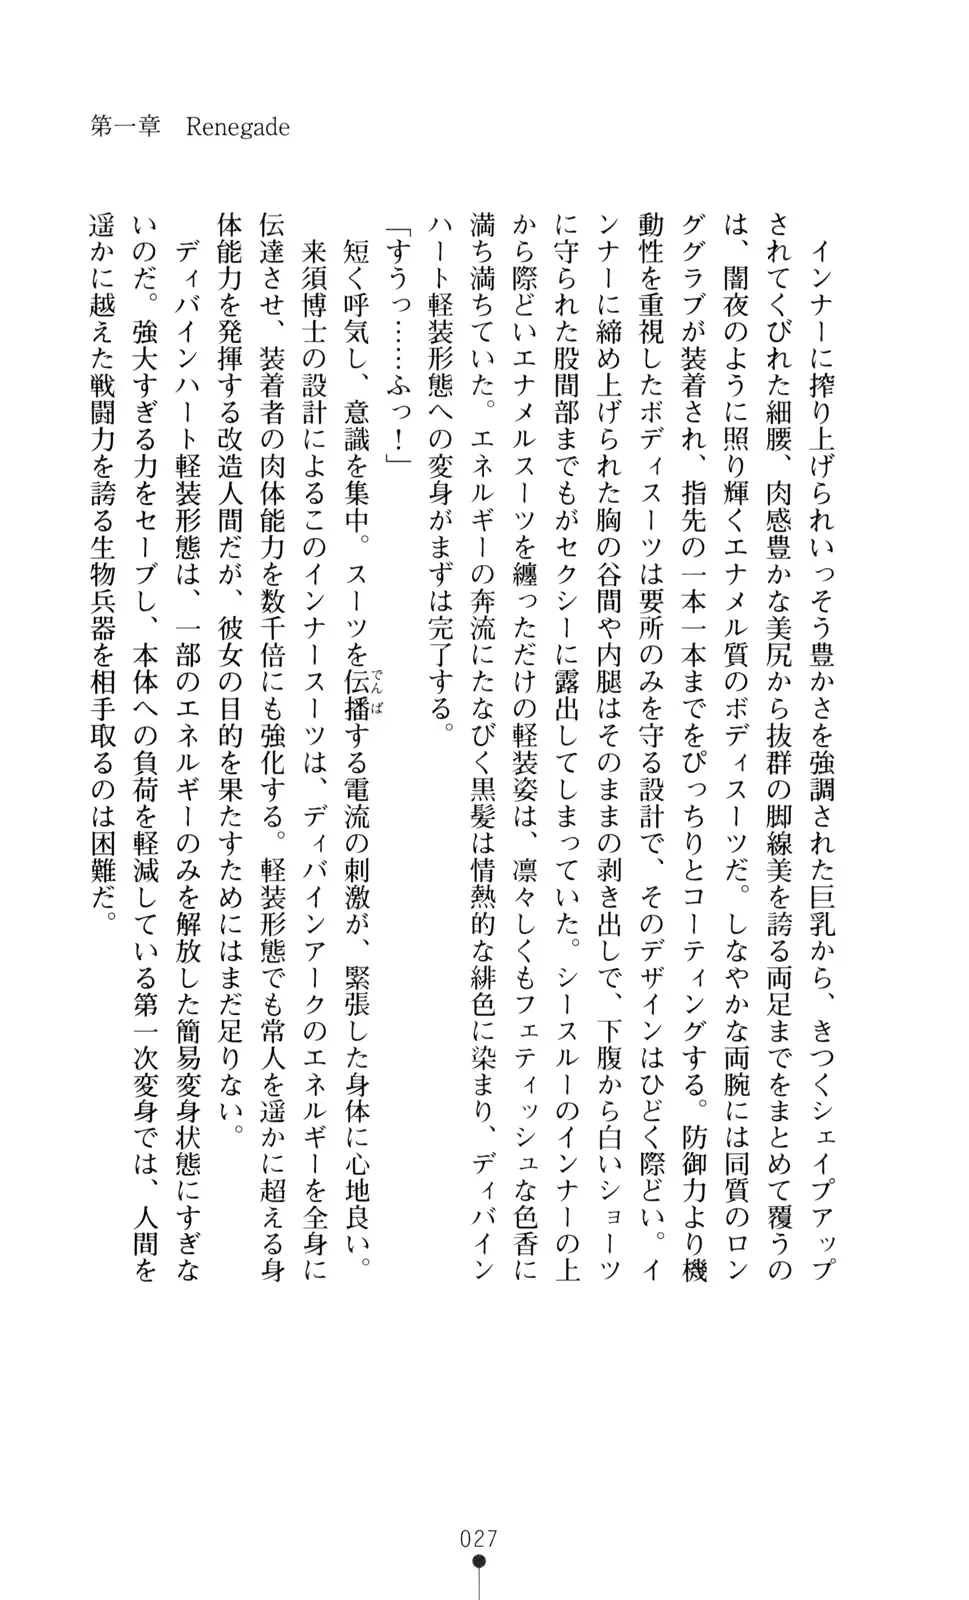 第一章　Renegade
　インナーに搾り上げられいっそう豊かさを強調された巨乳から、きつくシェイプアップ
されてくびれた細腰、肉感豊かな美尻から抜群の脚線美を誇る両足までをまとめて覆うの
は、闇夜のように照り輝くエナメル質のボディスーツだ。しなやかな両腕には同質のロン
ググラブが装着され、指先の一本一本までをぴっちりとコーティングする。防御力より機
動性を重視したボディスーツは要所のみを守る設計で、そのデザインはひどく際どい。イ
ンナーに締め上げられた胸の谷間や内腿はそのままの剥き出しで、下腹から白いショーツ
に守られた股間部までもがセクシーに露出してしまっていた。シースルーのインナーの上
から際どいエナメルスーツを纏っただけの軽装姿は、凛々しくもフェティッシュな色香に
満ち満ちていた。エネルギーの奔流にたなびく黒髪は情熱的な緋色に染まり、ディバイン
ハート軽装形態への変身がまずは完了する。
「すうっ……ふっ！」
　短く呼気し、意識を集中。スーツを伝播でんぱする電流の刺激が、緊張した身体に心地良い。
　来須博士の設計によるこのインナースーツは、ディバインアークのエネルギーを全身に
伝達させ、装着者の肉体能力を数千倍にも強化する。軽装形態でも常人を遥かに超える身
体能力を発揮する改造人間だが、彼女の目的を果たすためにはまだ足りない。
　ディバインハート軽装形態は、一部のエネルギーのみを解放した簡易変身状態にすぎな
いのだ。強大すぎる力をセーブし、本体への負荷を軽減している第一次変身では、人間を
遥かに越えた戦闘力を誇る生物兵器を相手取るのは困難だ。
027